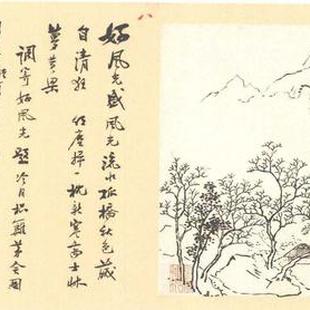 好風光盛風光流水孤橋秋色藏
自清狂 塵掃一枕新寒高士牀
夢黃粱
調寄好風光 題冷月松蘿茅舍圖